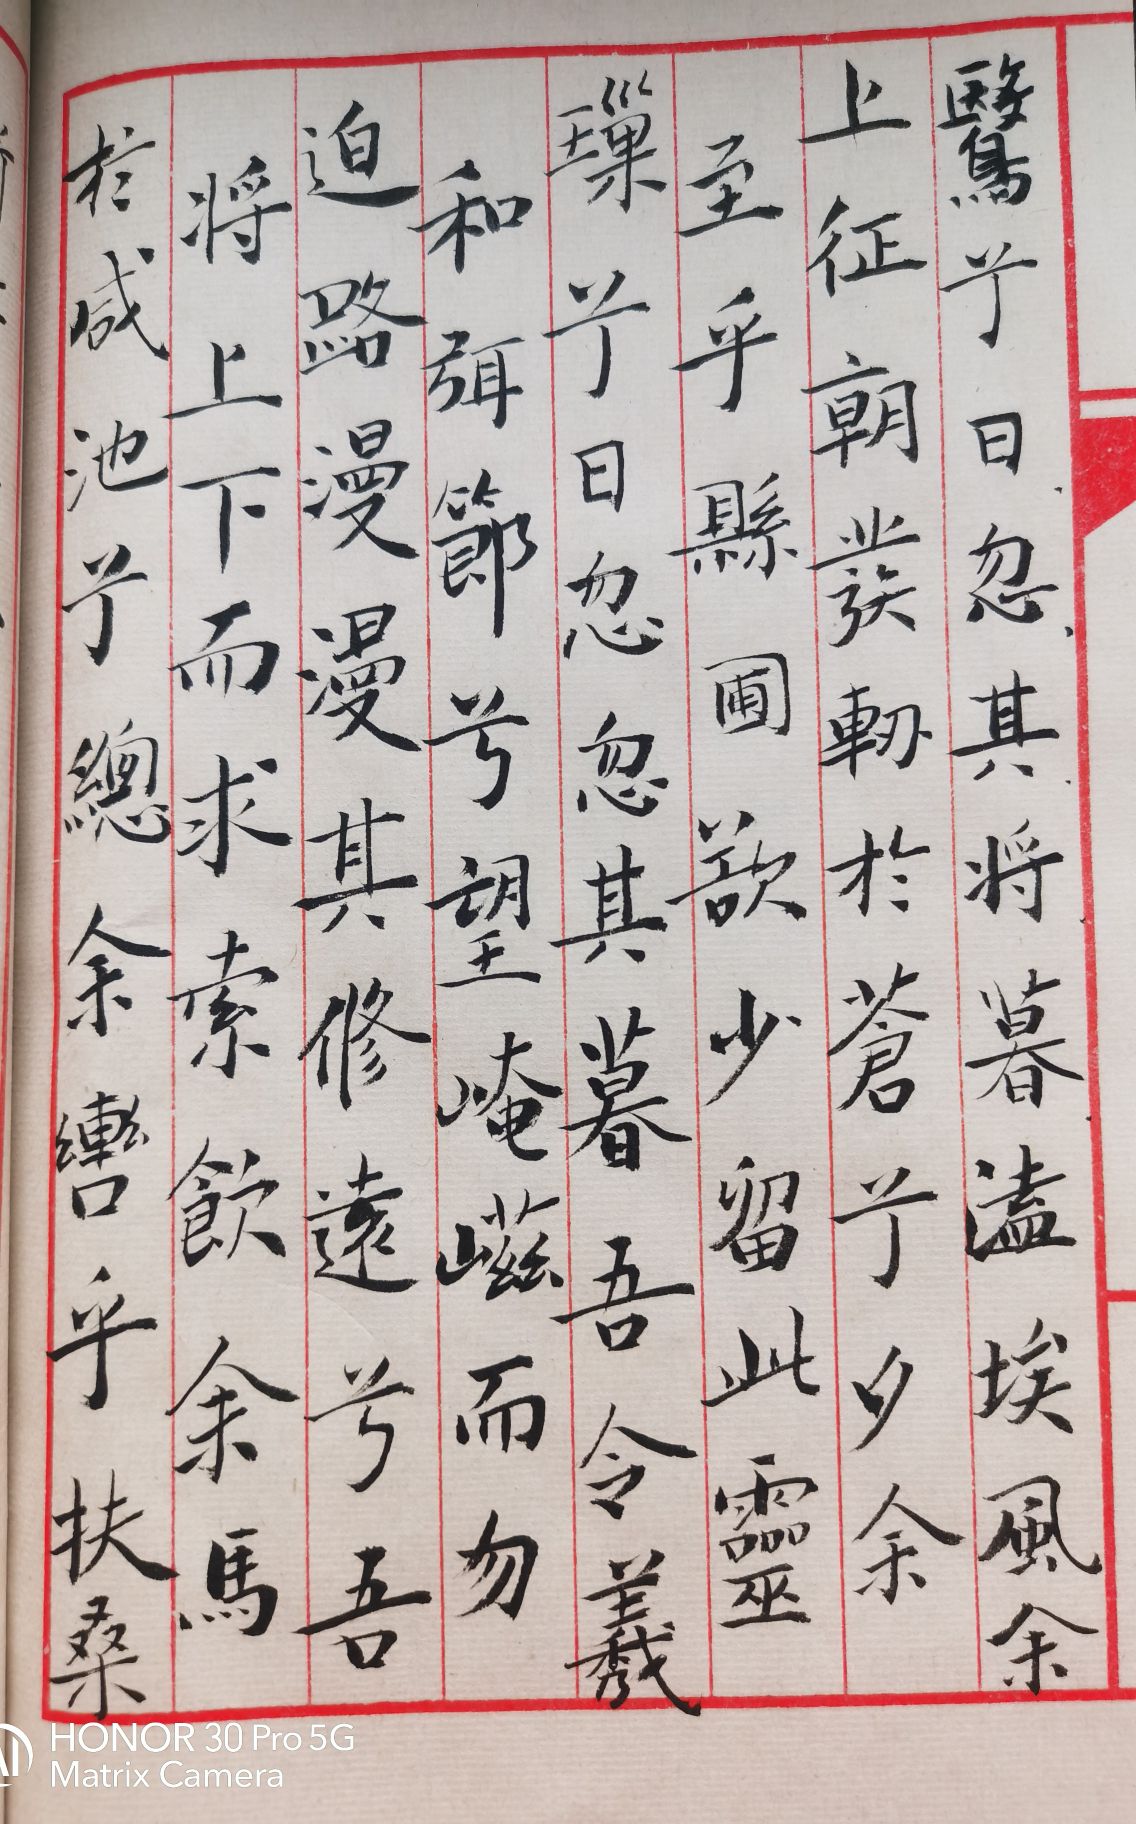 鷖兮日忽其将暮溘埃風余
上征朝發軔於蒼兮夕余
至乎縣圃欲少留此靈
璅兮日忽忽其暮吾令羲
和弭節兮望崦嵫而勿
迫路漫漫其修遠兮吾
将上下而求索飲余馬
於咸池兮總余轡乎扶桑
HONOR 30 Pro 5G
Matrix Camera